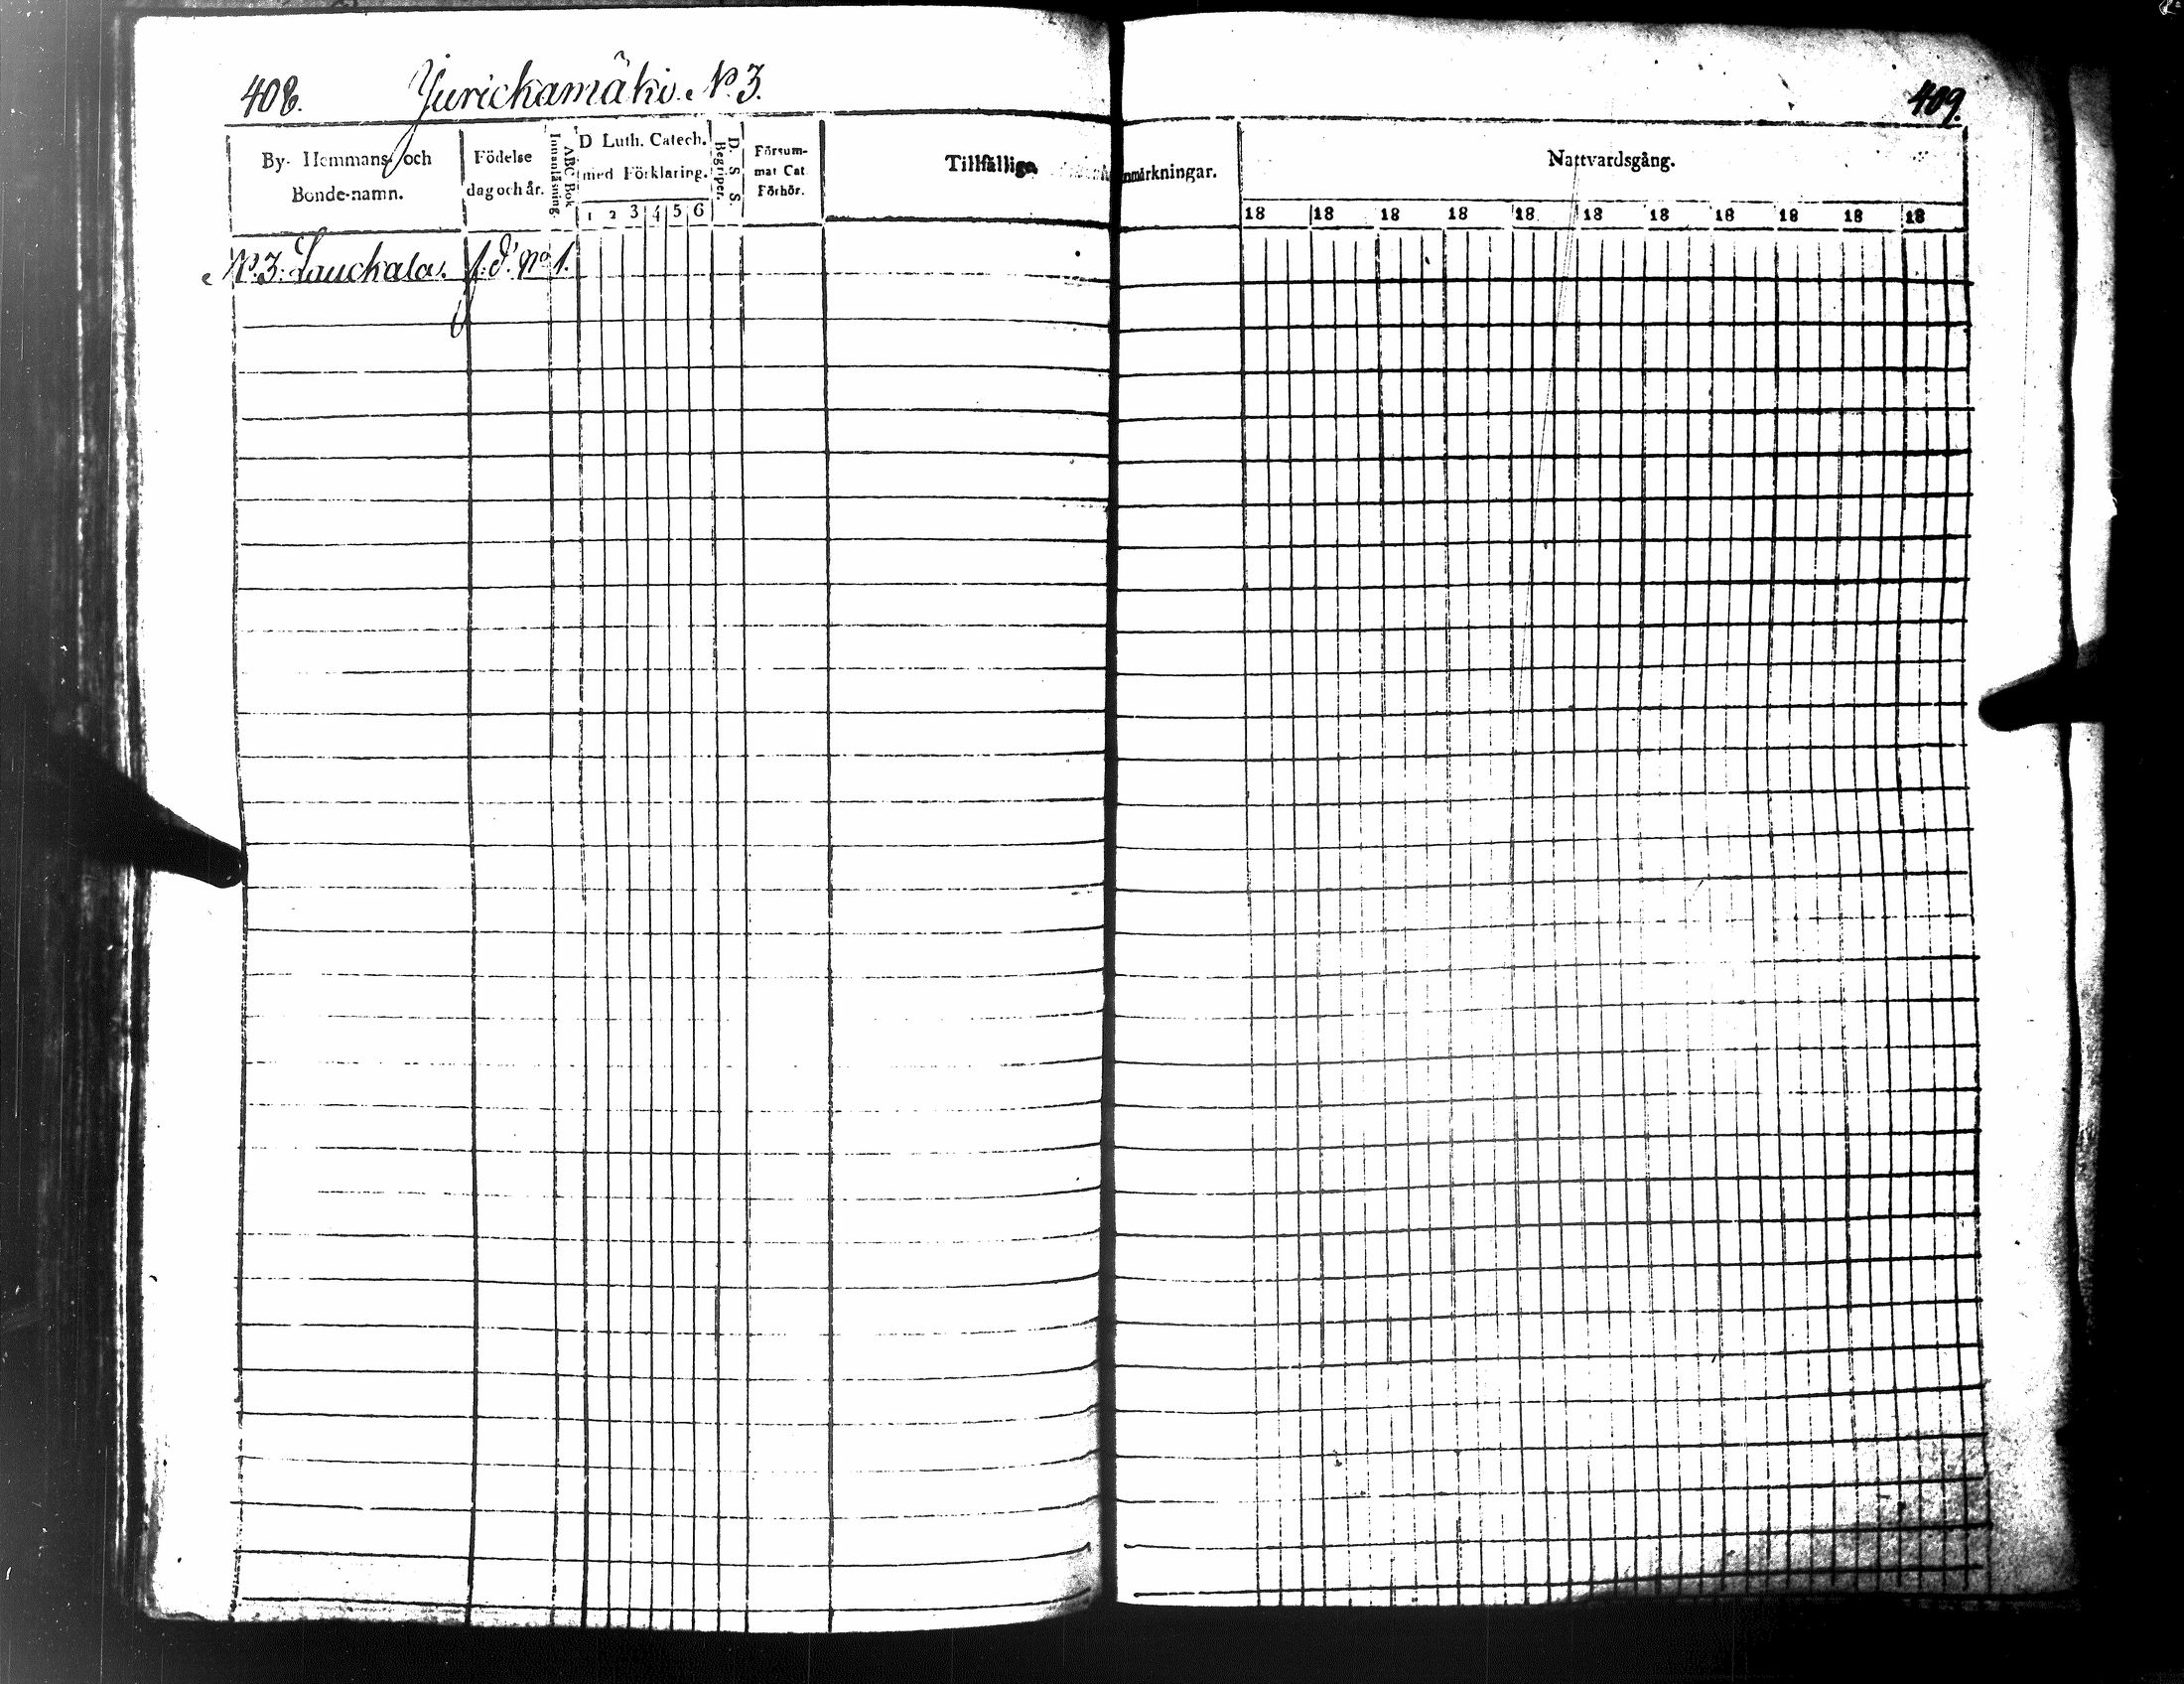 408. Jurickamäki. N:o 3.
409.
By- Hemmans- och
Bonde-namn.
Födelse
dag och år.
Innanläsning.
ABC Bok
D Luth. Catech.
med Förklaring.
1 2 3 4 5 6
D. S. S.
Begriper.
Försum-
mat Cat.
Förhör.
Tillfällige Anmärkningar.
Nattvardsgång.
18 18 18 18 18 18 18 18 18 18 18
N:o 3. Lauckala. f. d. No 1.